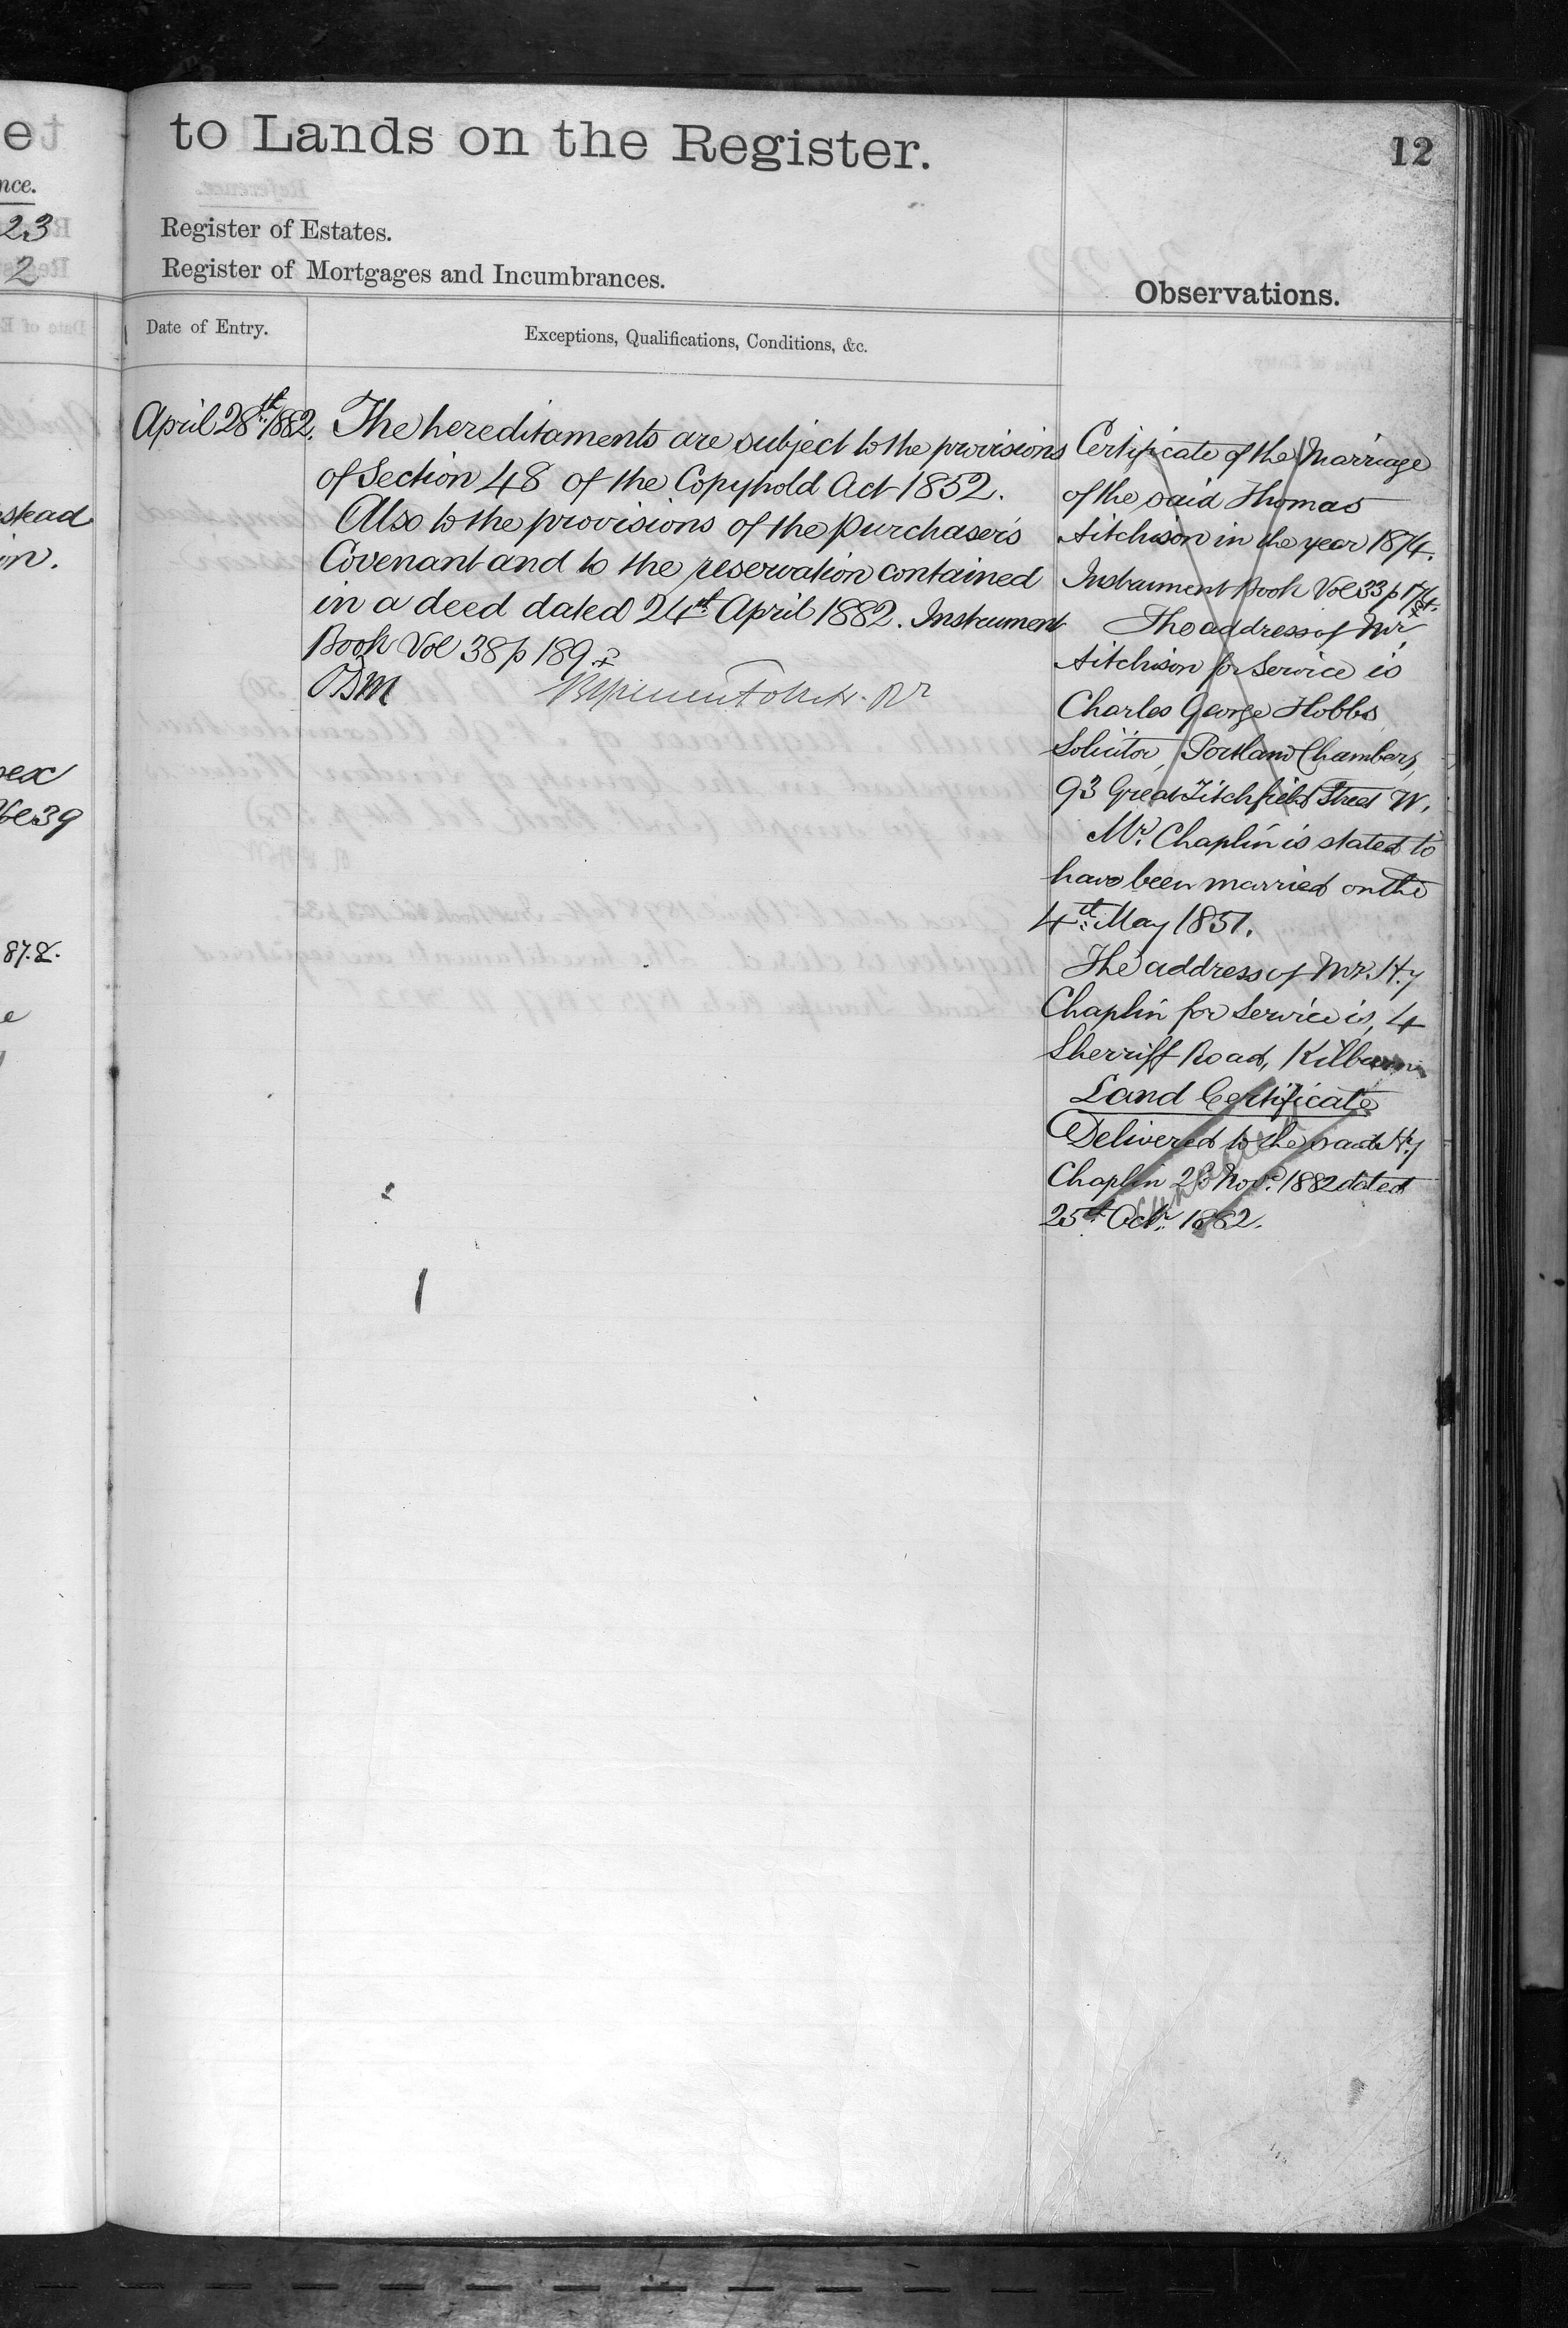 to Lands on the Register.
12
Register of Estates.
Register of Mortgages and Incumbrances.
Observations.
Date of Entry.
Exceptions, Qualifications, Conditions, &c.
April 28th 1882.
The hereditaments are subject to the provisions
of Section 48 of the Copyhold Act 1852.
Also to the provisions of the purchaser's
Covenant and to the reservation contained
in a deed dated 24th April 1882. Instrument
Book Vol 38 p 189.
Certificate of the Marriage
of the said Thomas
Aitchison in the year 1874.
Instrument Book Vol 33 p 174.
The address of Mr
Aitchison for Service is
Charles George Hobbs
Solicitor, Portland Chambers,
93 Great Titchfield Street W.
Mr. Chaplin is stated to
have been married on the
4th May 1851.
The address of Mr. Hy
Chaplin for Service is, 4
Sherriff Road, Kilburn
Land Certificate
Delivered to the said Hy
Chaplin 23 Novr. 1882 dated
25th Octr. 1882.
nce.
23
2
Vol 39
87.